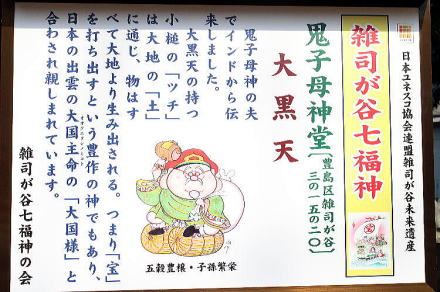 日本ユネスコ協会連盟雑司が谷未来遺産
雑司が谷七福神
鬼子母神堂〔豊島区雑司が谷三の一五の二〇〕
大黒天
鬼子母神の夫
でインドから伝
来しました。
大黒天の持つ
小槌の「ツチ」
は大地の「土」
に通じ、物はす
べて大地より生み出される。つまり「宝」
を打ち出すという豊作の神でもあり、
日本の出雲の大国主命の「大国様」と
合わされ親しまれています。
雑司が谷七福神の会
五穀豊穣・子孫繁栄